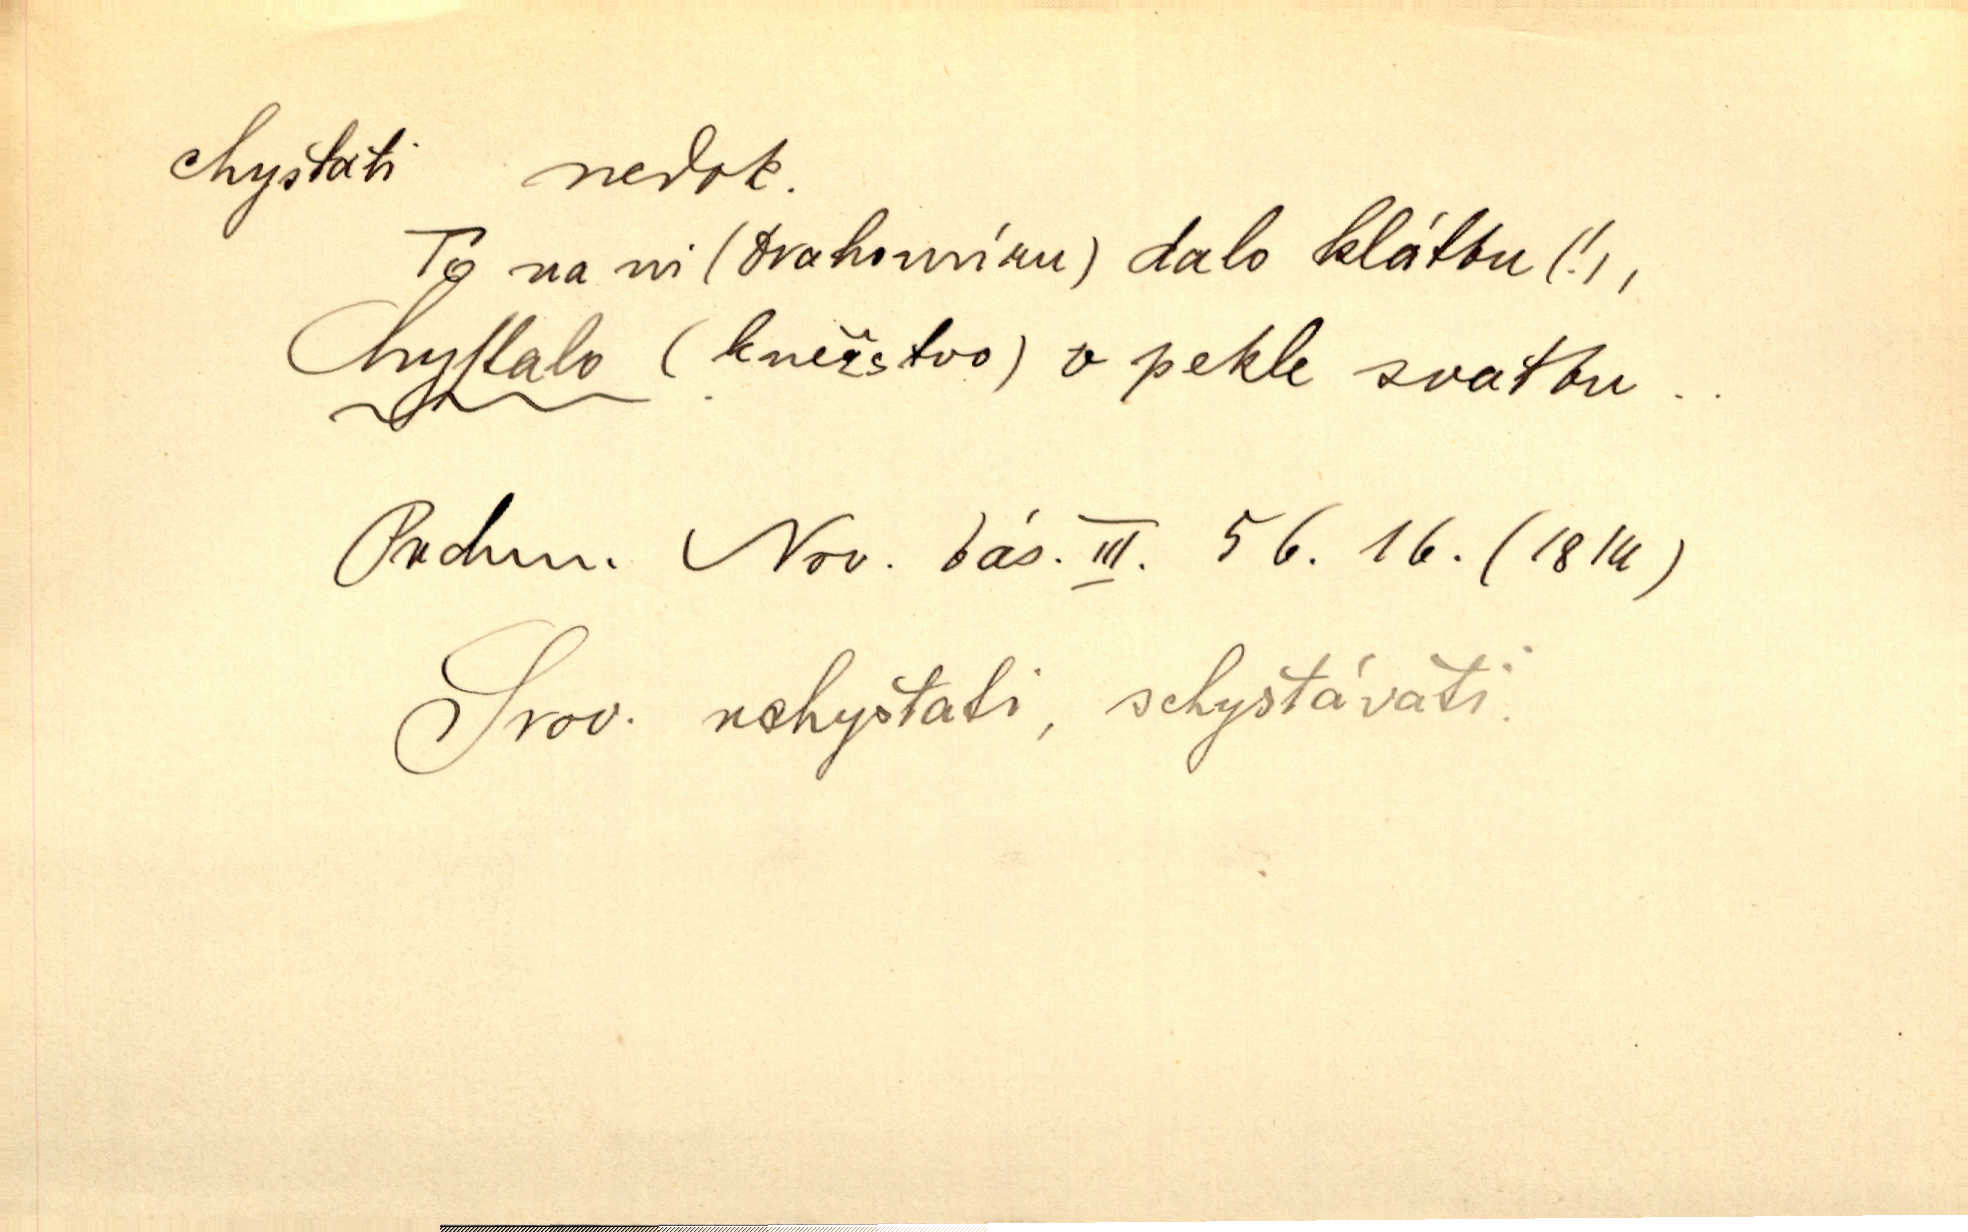 chystati nedok.
To na ni (Drahomíru) dalo klátbu (!),
Chystalo (kněžstvo) v pekle svatbu ..
Puchm. Nov. bás. III. 56. 16. (1814)
Srov. nchystati, schystávati.